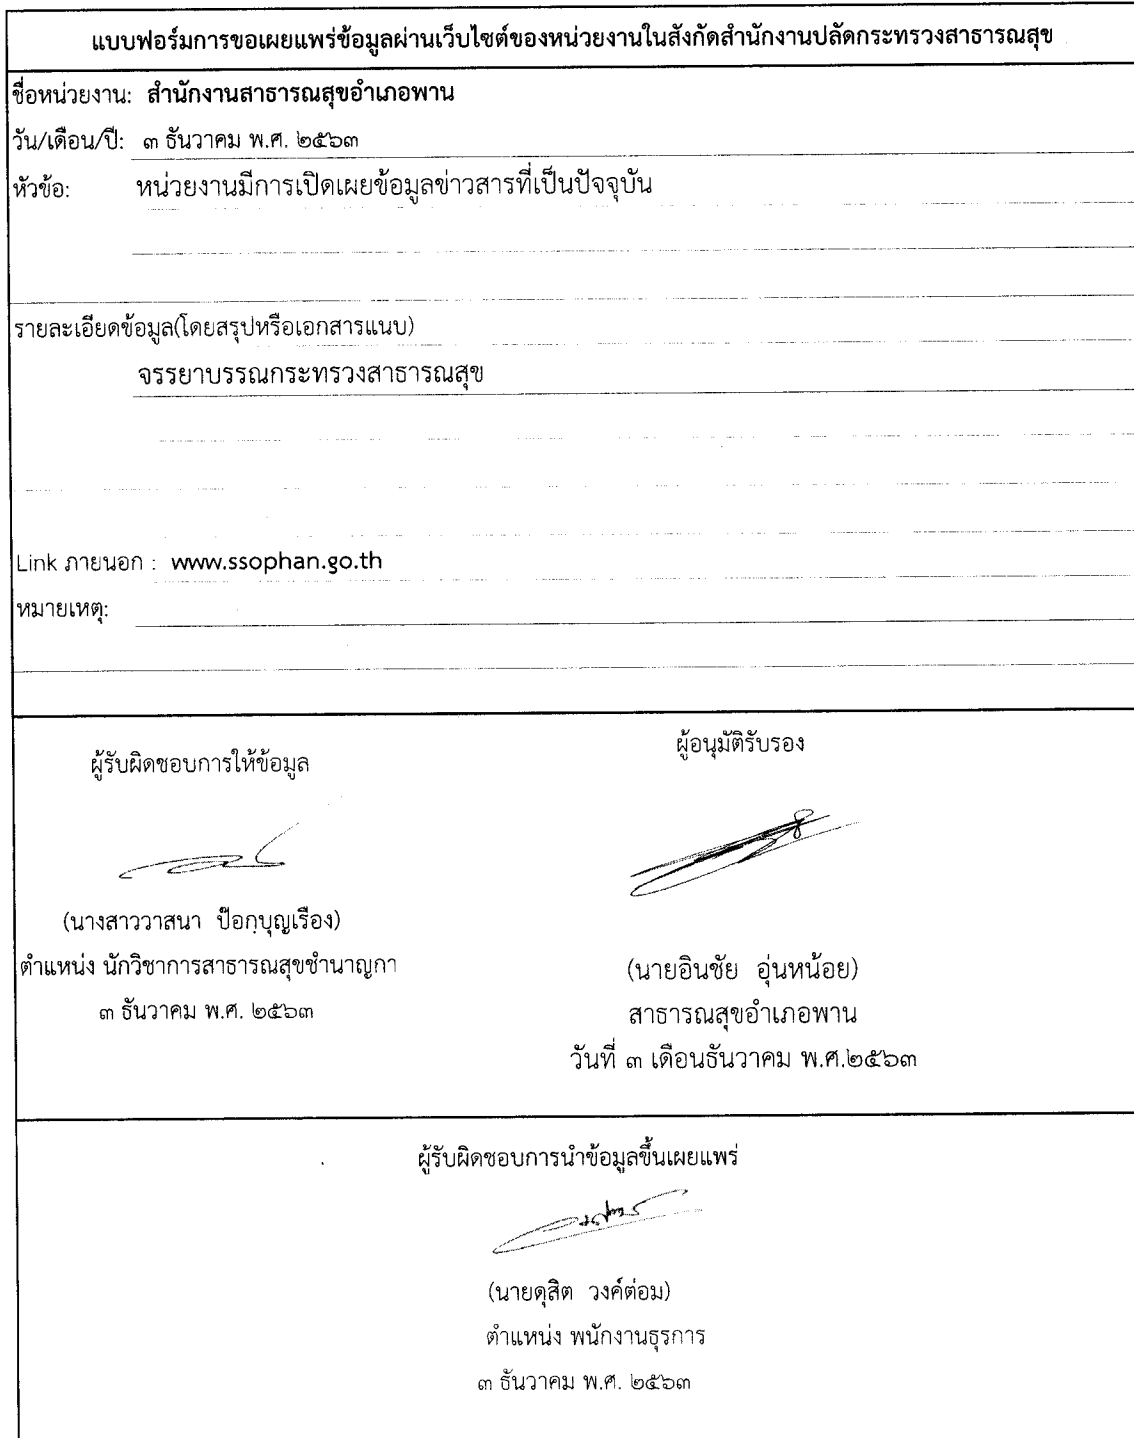 แบบฟอร์มการขอเผยแพร่ข้อมูลผ่านเว็บไซต์ของหน่วยงานในสังกัดสำนักงานปลัดกระทรวงสาธารณสุข
ชื่อหน่วยงาน: สำนักงานสาธารณสุขอำเภอพาน
วัน/เดือน/ปี: ๓ ธันวาคม พ.ศ. ๒๕๖๓
หัวข้อ: หน่วยงานมีการเปิดเผยข้อมูลข่าวสารที่เป็นปัจจุบัน
รายละเอียดข้อมูล(โดยสรุปหรือเอกสารแนบ)
จรรยาบรรณกระทรวงสาธารณสุข
Link ภายนอก : www.ssophan.go.th
หมายเหตุ:
ผู้รับผิดชอบการให้ข้อมูล
(นางสาววาสนา ป๊อกบุญเรือง)
ตำแหน่ง นักวิชาการสาธารณสุขชำนาญกา
๓ ธันวาคม พ.ศ. ๒๕๖๓
ผู้อนุมัติรับรอง
(นายอินชัย อุ่นหน้อย)
สาธารณสุขอำเภอพาน
วันที่ ๓ เดือนธันวาคม พ.ศ.๒๕๖๓
ผู้รับผิดชอบการนำข้อมูลขึ้นเผยแพร่
(นายดุสิต วงค์ต่อม)
ตำแหน่ง พนักงานธุรการ
๓ ธันวาคม พ.ศ. ๒๕๖๓